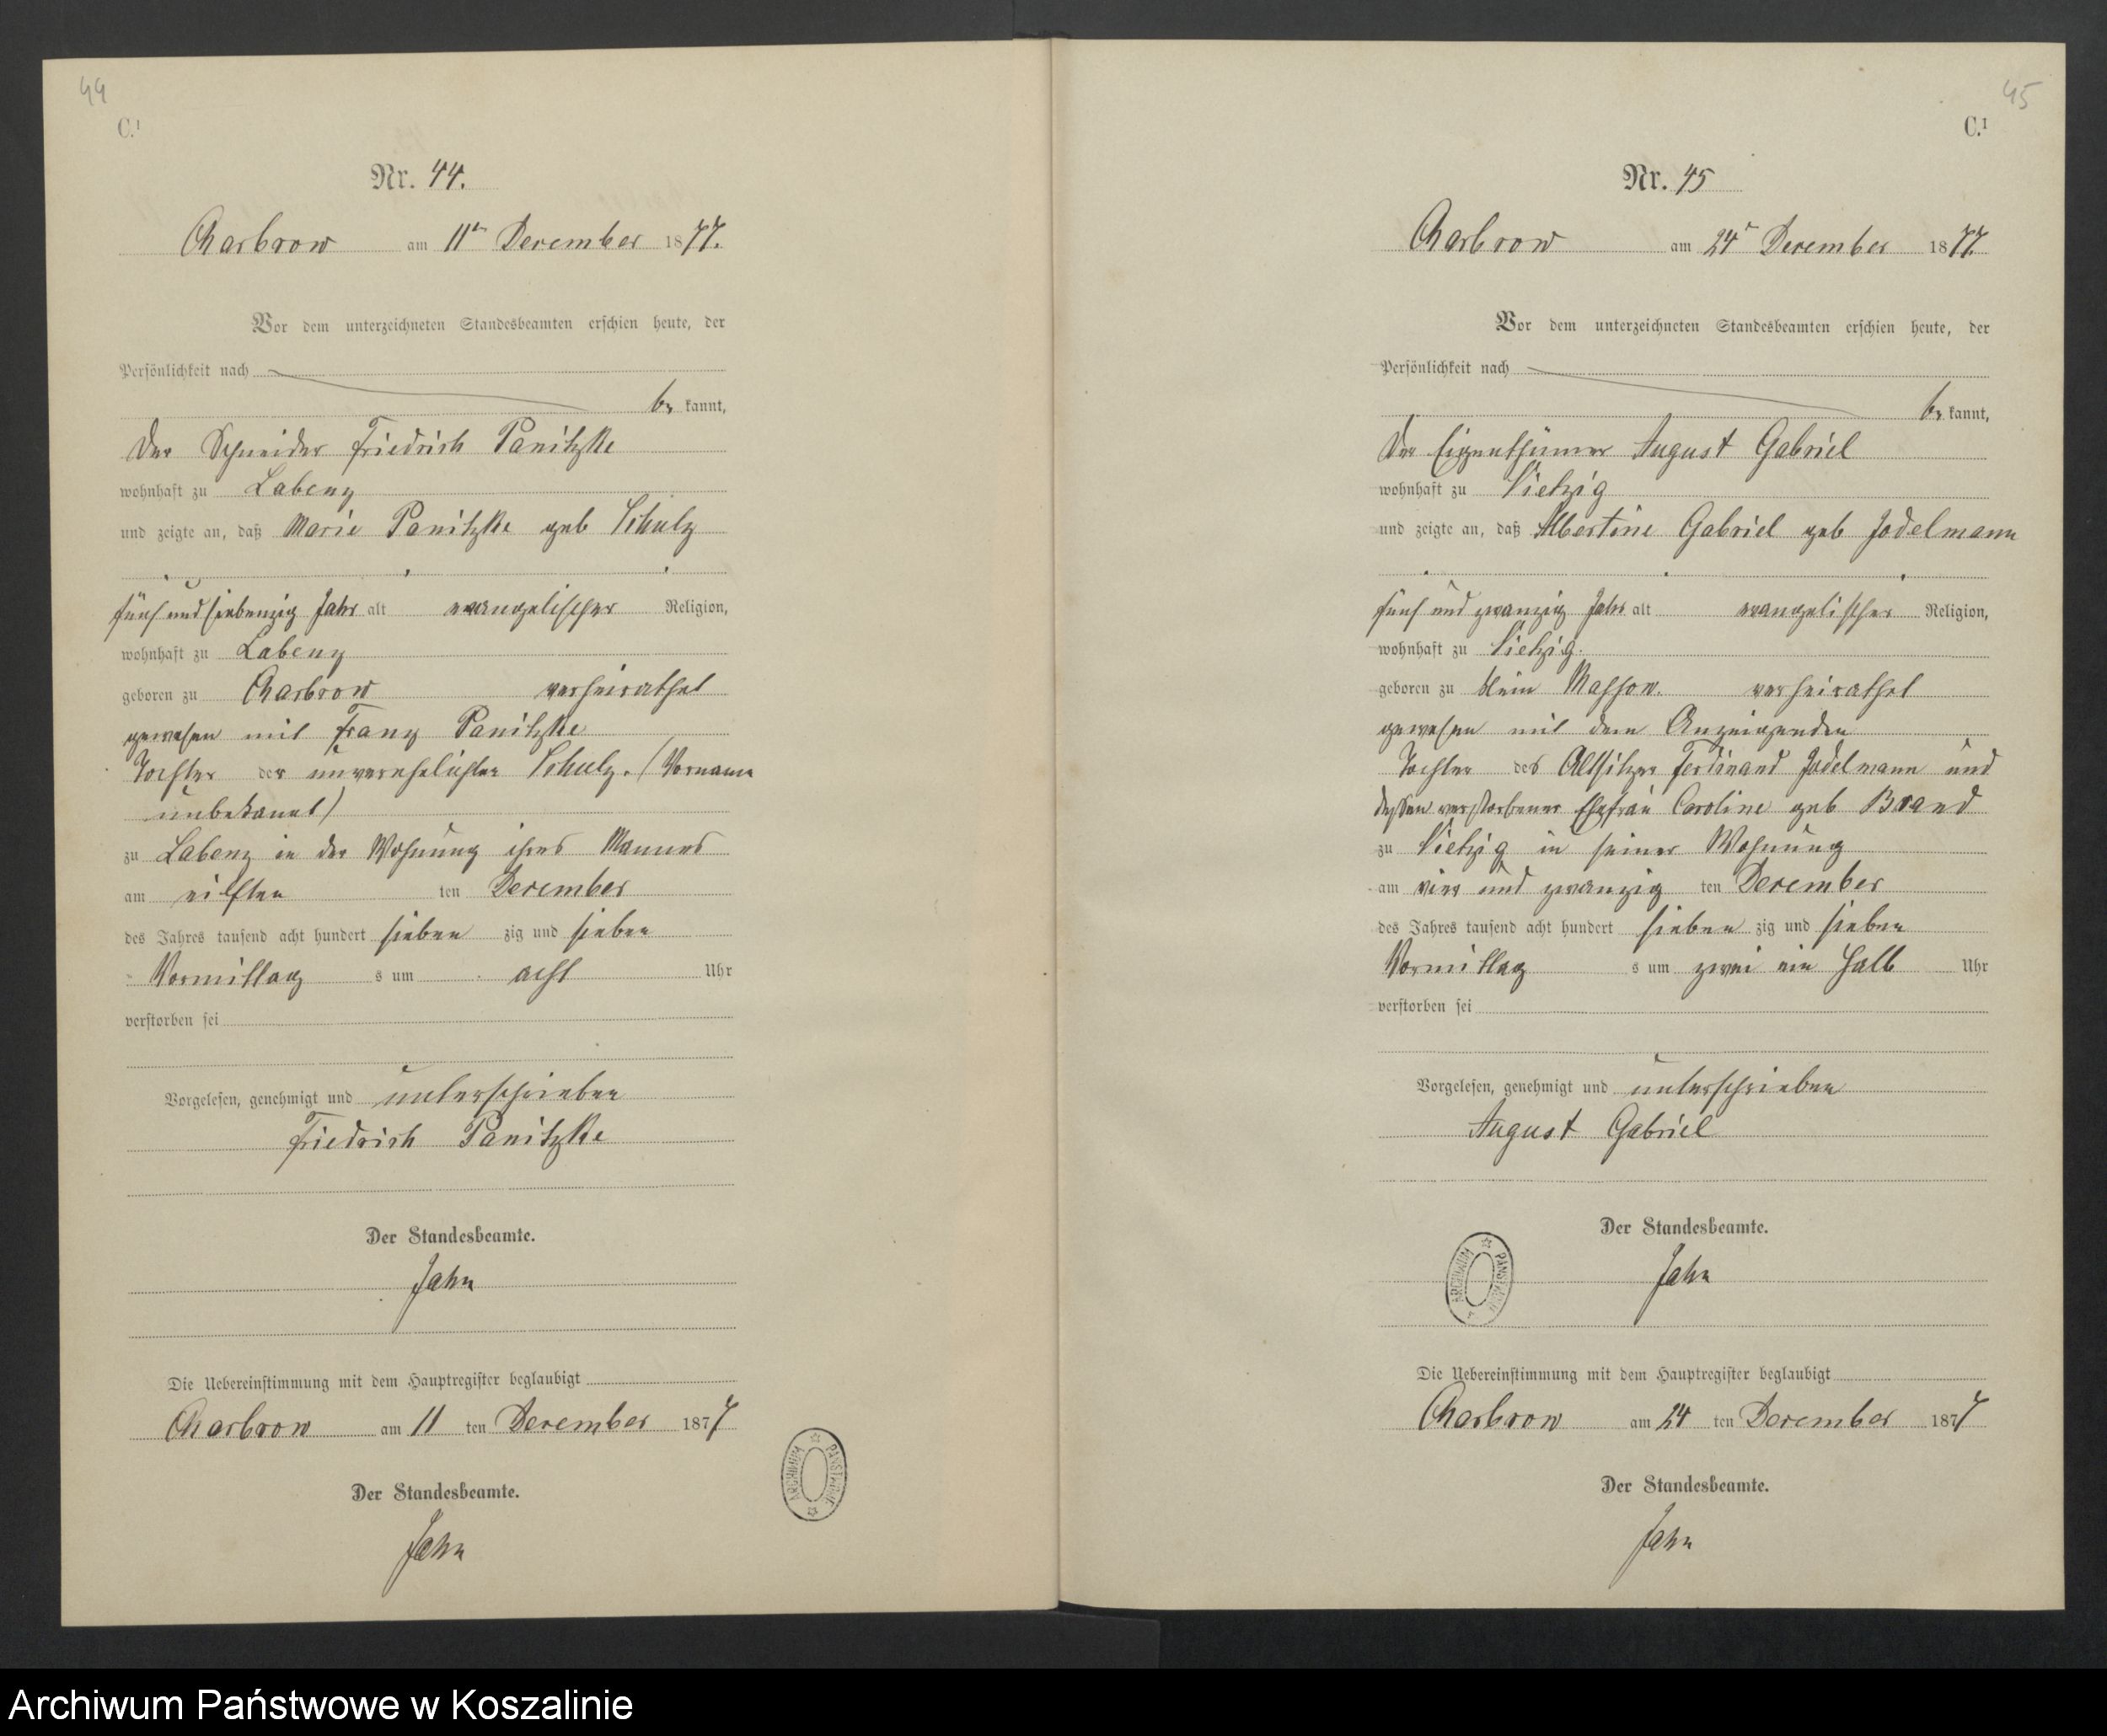 44
C.1
Nr. 44.
Charbrow am 11ten December 1877.
Vor dem unterzeichneten Standesbeamten erschien heute, der
Persönlichkeit nach
be kannt,
Der Schneider Friedrich Panitzke
wohnhaft zu Labenz
und zeigte an, daß Marie Panitzke geb Schulz
fünf und siebenzig Jahr alt evangelischer Religion,
wohnhaft zu Labenz
geboren zu Charbrow verheirathet
gewesen mit Franz Panitzke
Tochter der unverehelichten Schulz. (Vorname
unbekannt)
zu Labenz in der Wohnung ihres Mannes
am eilften ten December
des Jahres tausend acht hundert sieben zig und sieben
Vormittag s um acht Uhr
verstorben sei
Vorgelesen, genehmigt und unterschrieben
Friedrich Panitzke
Der Standesbeamte.
Jahn
Die Uebereinstimmung mit dem Hauptregister beglaubigt
Charbrow am 11 ten December 1877
Der Standesbeamte.
Jahn
ARCHIWUM PAŃSTWOWE
45
C.1
Nr. 45
Charbrow am 24t December 1877.
Vor dem unterzeichneten Standesbeamten erschien heute, der
Persönlichkeit nach
be kannt,
Der Eigenthümer August Gabriel
wohnhaft zu Vietzig
und zeigte an, daß Albertine Gabriel geb Jodelmann
fünf und zwanzig Jahr alt evangelischer Religion,
wohnhaft zu Vietzig.
geboren zu Klein Massow. verheirathet
gewesen mit dem Anzeigenden
Tochter des Altsitzer Ferdinand Jodelmann und
dessen verstorbener Ehefrau Caroline geb Brand
zu Vietzig in seiner Wohnung
am vier und zwanzig ten December
des Jahres tausend acht hundert sieben zig und sieben
Vormittag s um zwei ein halb Uhr
verstorben sei
Vorgelesen, genehmigt und unterschrieben
August Gabriel
Der Standesbeamte.
Jahn
ARCHIWUM PAŃSTWOWE
Die Uebereinstimmung mit dem Hauptregister beglaubigt
Charbrow am 24 ten December 1877
Der Standesbeamte.
Jahn
Archiwum Państwowe w Koszalinie